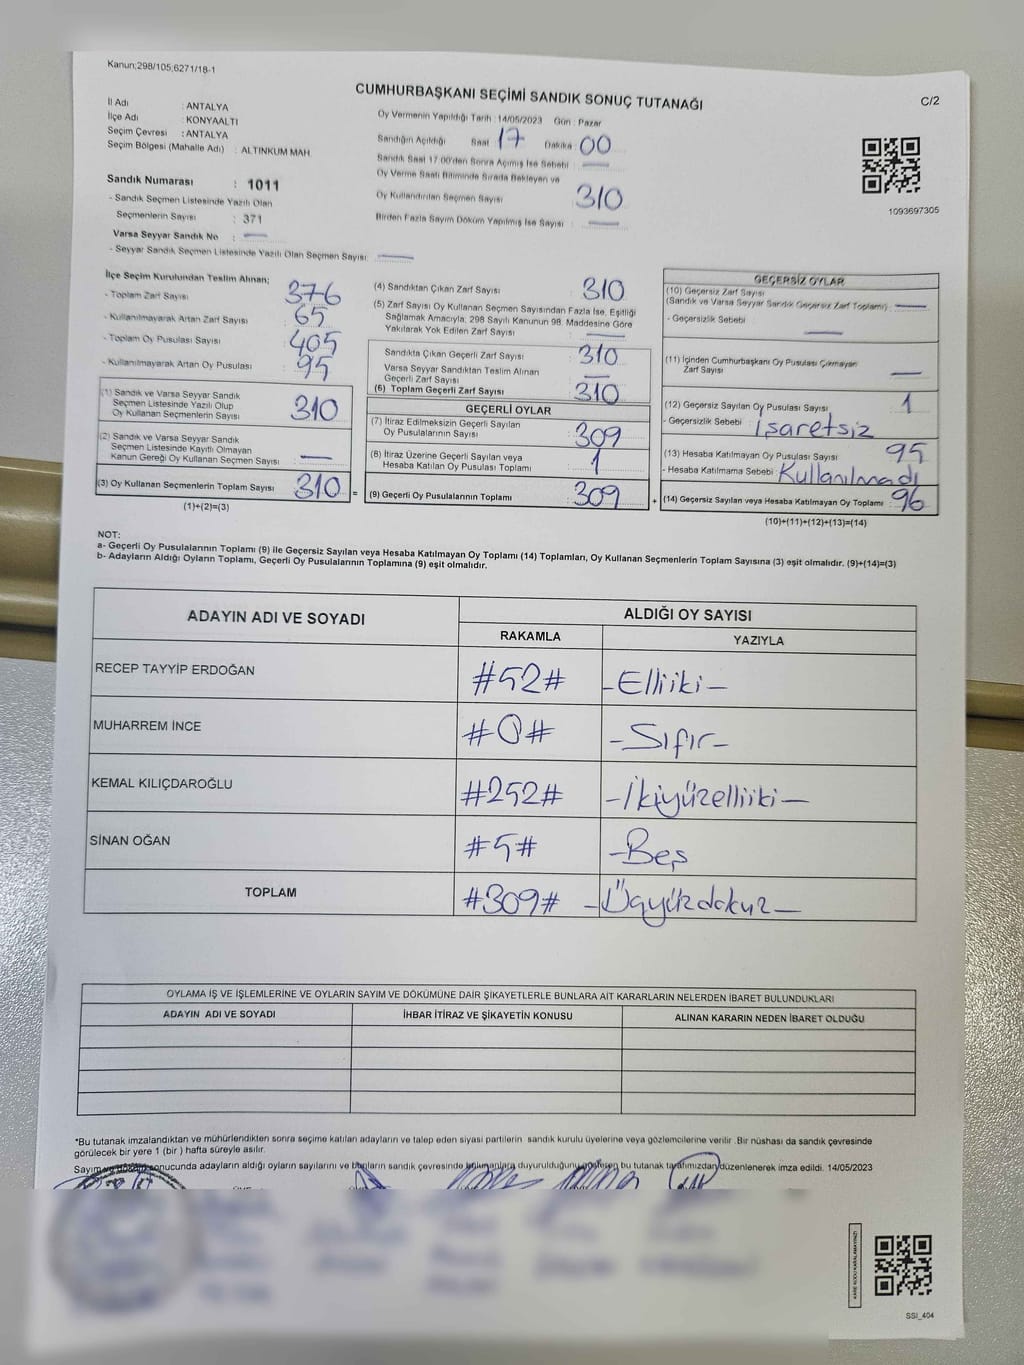 Kanun;298/105;6271/18-1
CUMHURBAŞKANI SEÇİMİ SANDIK SONUÇ TUTANAĞI
C/2
İl Adı : ANTALYA
İlçe Adı : KONYAALTI
Seçim Çevresi : ANTALYA
Seçim Bölgesi (Mahalle Adı) : ALTINKUM MAH.
Sandık Numarası : 1011
- Sandık Seçmen Listesinde Yazılı Olan
Seçmenlerin Sayısı : 371
Varsa Seyyar Sandık No : —
- Seyyar Sandık Seçmen Listesinde Yazılı Olan Seçmen Sayısı: —
Oy Vermenin Yapıldığı Tarih : 14/05/2023 Gün : Pazar
Sandığın Açıldığı Saat 17 Dakika : 00
Sandık Saat 17.00'den Sonra Açımış İse Sebebi : —
Oy Verme Saati Bitiminde Sırada Bekleyen ve
Oy Kullandırılan Seçmen Sayısı : 310
Birden Fazla Sayım Döküm Yapılmış İse Sayısı : —
1093697305
İlçe Seçim Kurulundan Teslim Alınan;
- Toplam Zarf Sayısı : 376
- Kullanılmayarak Artan Zarf Sayısı : 65
- Toplam Oy Pusulası Sayısı : 405
- Kullanılmayarak Artan Oy Pusulası : 95
(1) Sandık ve Varsa Seyyar Sandık
Seçmen Listesinde Yazılı Olup
Oy Kullanan Seçmenlerin Sayısı : 310
(2) Sandık ve Varsa Seyyar Sandık
Seçmen Listesinde Kayıtlı Olmayan
Kanun Gereği Oy Kullanan Seçmen Sayısı : —
(3) Oy Kullanan Seçmenlerin Toplam Sayısı : 310 =
(1)+(2)=(3)
(4) Sandıktan Çıkan Zarf Sayısı : 310
(5) Zarf Sayısı Oy Kullanan Seçmen Sayısından Fazla İse, Eşitliği
Sağlamak Amacıyla, 298 Sayılı Kanunun 98. Maddesine Göre
Yakılarak Yok Edilen Zarf Sayısı : —
Sandıkta Çıkan Geçerli Zarf Sayısı : 310
Varsa Seyyar Sandıktan Teslim Alınan
Geçerli Zarf Sayısı : —
(6) Toplam Geçerli Zarf Sayısı : 310
GEÇERLİ OYLAR
(7) İtiraz Edilmeksizin Geçerli Sayılan
Oy Pusulalarının Sayısı : 309
(8) İtiraz Üzerine Geçerli Sayılan veya
Hesaba Katılan Oy Pusulası Toplamı : 1
(9) Geçerli Oy Pusulalarının Toplamı : 309 +
GEÇERSİZ OYLAR
(10) Geçersiz Zarf Sayısı
(Sandık ve Varsa Seyyar Sandık Geçersiz Zarf Toplamı) : —
- Geçersizlik Sebebi : —
(11) İçinden Cumhurbaşkanı Oy Pusulası Çıkmayan
Zarf Sayısı : —
(12) Geçersiz Sayılan Oy Pusulası Sayısı : 1
- Geçersizlik Sebebi : İşaretsiz
(13) Hesaba Katılmayan Oy Pusulası Sayısı : 95
- Hesaba Katılmama Sebebi : Kullanılmadı
(14) Geçersiz Sayılan veya Hesaba Katılmayan Oy Toplamı : 96
(10)+(11)+(12)+(13)=(14)
NOT:
a- Geçerli Oy Pusulalarının Toplamı (9) ile Geçersiz Sayılan veya Hesaba Katılmayan Oy Toplamı (14) Toplamları, Oy Kullanan Seçmenlerin Toplam Sayısına (3) eşit olmalıdır. (9)+(14)=(3)
b- Adayların Aldığı Oyların Toplamı, Geçerli Oy Pusulalarının Toplamına (9) eşit olmalıdır.
ADAYIN ADI VE SOYADI ALDIĞI OY SAYISI
RAKAMLA YAZIYLA
RECEP TAYYİP ERDOĞAN #52# -Elliiki-
MUHARREM İNCE #0# -Sıfır-
KEMAL KILIÇDAROĞLU #252# -İkiyüzelliiki-
SİNAN OĞAN #5# -Beş
TOPLAM #309# -Üçyüzdokuz-
OYLAMA İŞ VE İŞLEMLERİNE VE OYLARIN SAYIM VE DÖKÜMÜNE DAİR ŞİKAYETLERLE BUNLARA AİT KARARLARIN NELERDEN İBARET BULUNDUKLARI
ADAYIN ADI VE SOYADI İHBAR İTİRAZ VE ŞİKAYETİN KONUSU ALINAN KARARIN NEDEN İBARET OLDUĞU
*Bu tutanak imzalandıktan ve mühürlendikten sonra seçime katılan adayların ve talep eden siyasi partilerin sandık kurulu üyelerine veya gözlemcilerine verilir .Bir nüshası da sandık çevresinde
görülecek bir yere 1 (bir ) hafta süreyle asılır.
Sayım ve döküm sonucunda adayların aldığı oyların sayılarını ve bunların sandık çevresinde bulunanlara duyurulduğunu gösteren bu tutanak tarafımızdan düzenlenerek imza edildi. 14/05/2023
SSI_404